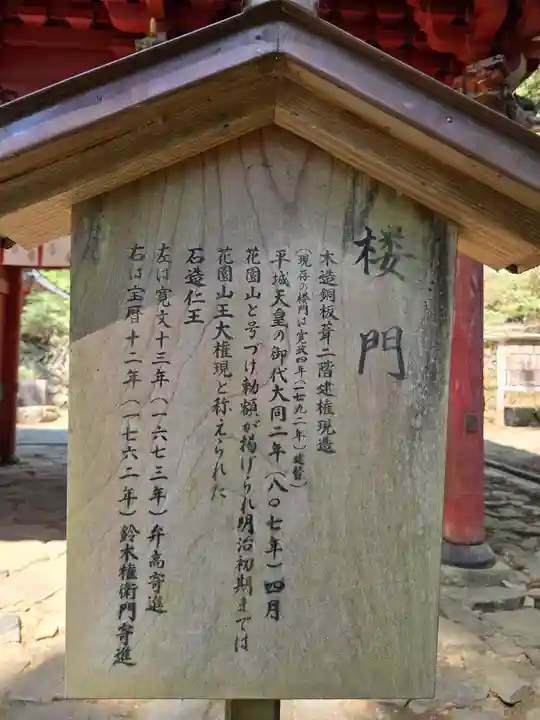 楼門
木造銅板葺二階建権現造
(現存の楼門は寛政四年(一七九二年)建督)
平城天皇の御代大同二年(八〇七年)四月
花園山と号づけ勅額が掲げられ明治初期までは
花園山王大権現と称えられた
石造仁王
左は寛文十三年(一六七三年)弁高寄進
右は宝暦十二年(一七六二年)鈴木権衛門寄進